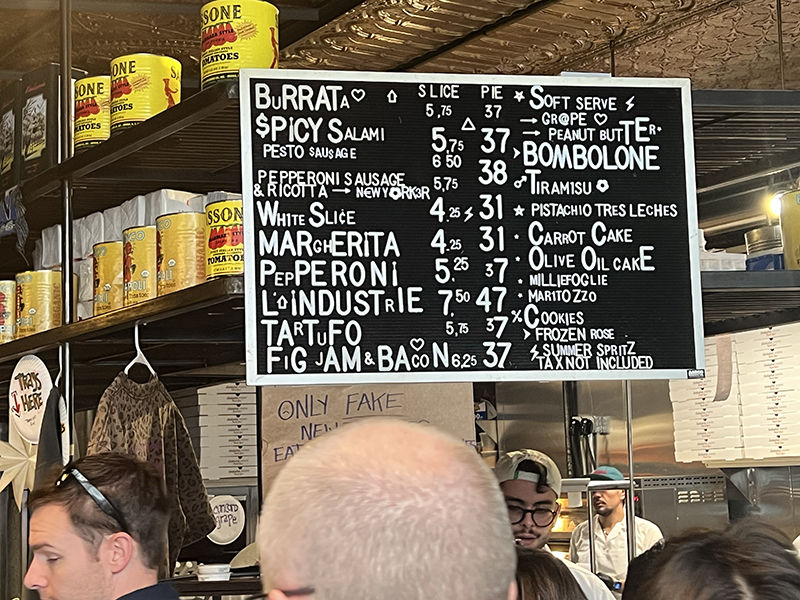 SSONE
TOMATOES
SSONE
TOMATOES
SONE
TOMATOES
SSONE
TOMATOES
SLICE PIE
BURRATA 5,75 37
$PICY SALAMI 5,75 37
PESTO SAUSAGE 6 50 38
PEPPERONI SAUSAGE
& RICOTTA → NEWYORK3R 5,75
WHITE SLICE 4.25 31
MARGHERITA 4.25 31
PEPPERONI 5 25 37
L'INDUSTRIE 7,50 47
TARTUFO 5,75 37
FIG JAM & BACON 6,25 37
SOFT SERVE
→ GR@PE
→ PEANUT BUTTER
BOMBOLONE
TIRAMISU
PISTACHIO TRES LECHES
CARROT CAKE
OLIVE OIL CAKE
MILLIEFOGLIE
MARITOZZO
COOKIES
FROZEN ROSE
SUMMER SPRITZ
TAX NOT INCLUDED
TRAYS
HERE
ONLY FAKE
NEW
EAT
custard
grape